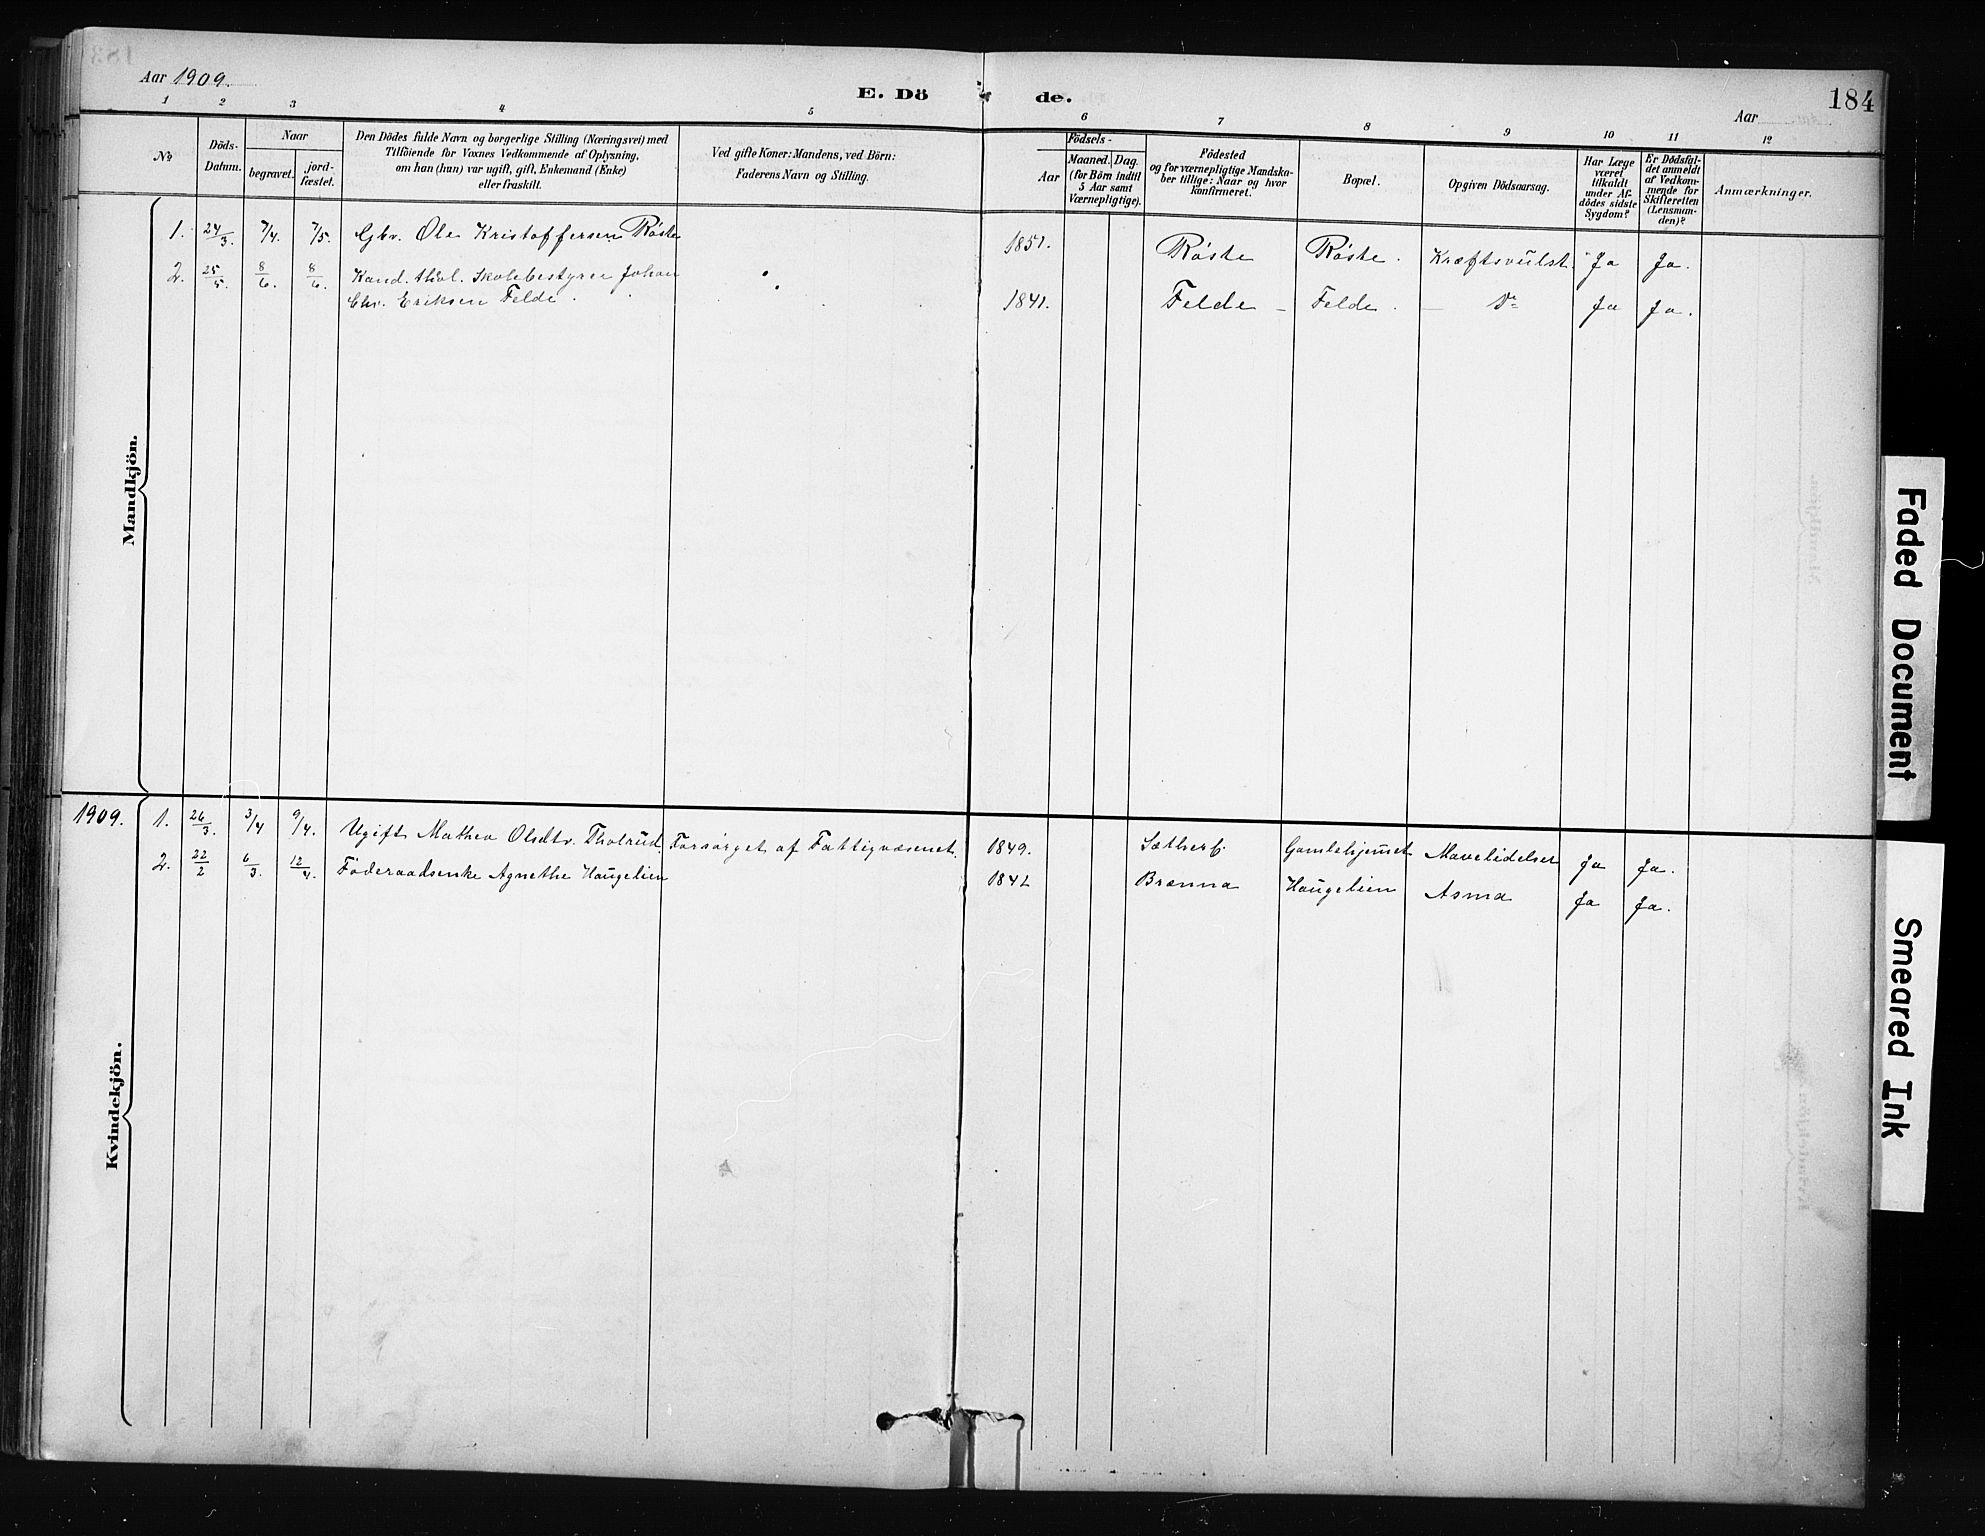 Aar 1909.
E. Dö de.
Aar
184
1 2 3 4 5 6 7 8 9 10 11 12
No
Döds-Datum.
Naar
begravet.
jord-fæstet.
Den Dödes fulde Navn og borgerlige Stilling (Næringsvei) med
Tilföiende for Voxnes Vedkommende af Oplysning,
om han (hun) var ugift, gift, Enkemand (Enke)
eller fraskilt.
Ved gifte Koner: Mandens, ved Börn:
Faderens Navn og Stilling.
Födsels-
Aar
Maaned. Dag.
(for Börn indtil
5 Aar samt
Værnepligtige).
Födested
og for værnepligtige Mandska-
ber tillige: Naar og hvor
konfirmeret.
Bopæl.
Opgiven Dödsaarsag.
Har Læge
været
tilkaldt
under Af-
dødes sidste
Sygdom?
Er Dödsfal-
det anmeldt
af Vedkom-
mende for
Skifteretten
(Lensman-
den)?
Anmærkninger.
Mandkjön.
1. 24/3. 7/4. 7/5. Gbr. Ole Kristoffersen Røste 1851. Røste Røste. Kræftsvulst. Ja Ja.
2. 25/5. 8/6. 8/6. Kand. theol. Skolebestyrer Johan
Chr. Eriksen Felde. 1841. Felde – Felde. – Do Ja Ja.
Kvindekjön.
1909. 1. 26/3. 3/4 9/4. Ugift Mathea Olsdtr. Tholrud. Forsørget af Fattigvæsenet. 1849. Sætherb. Gamlehjemet Mavelidelser Ja Ja.
2. 22/2 6/3. 12/4. Føderaadsenke Agnethe Haugelien 1842 Brænna Haugelien Asma Ja Ja.
Faded Document
Smeared Ink